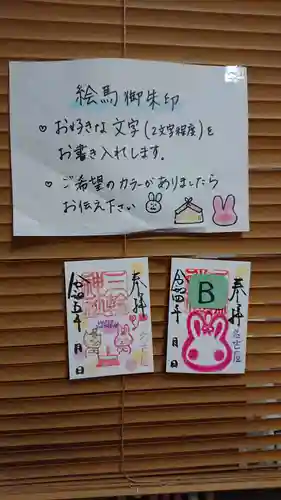 絵馬御朱印
♡お好きな文字(2文字程度)を
お書き入れします。
♡ご希望のカラーがありましたら
お伝え下さい
奉拝
令和五年 月 日
奉拝
令和四年 月 日
B
名古屋